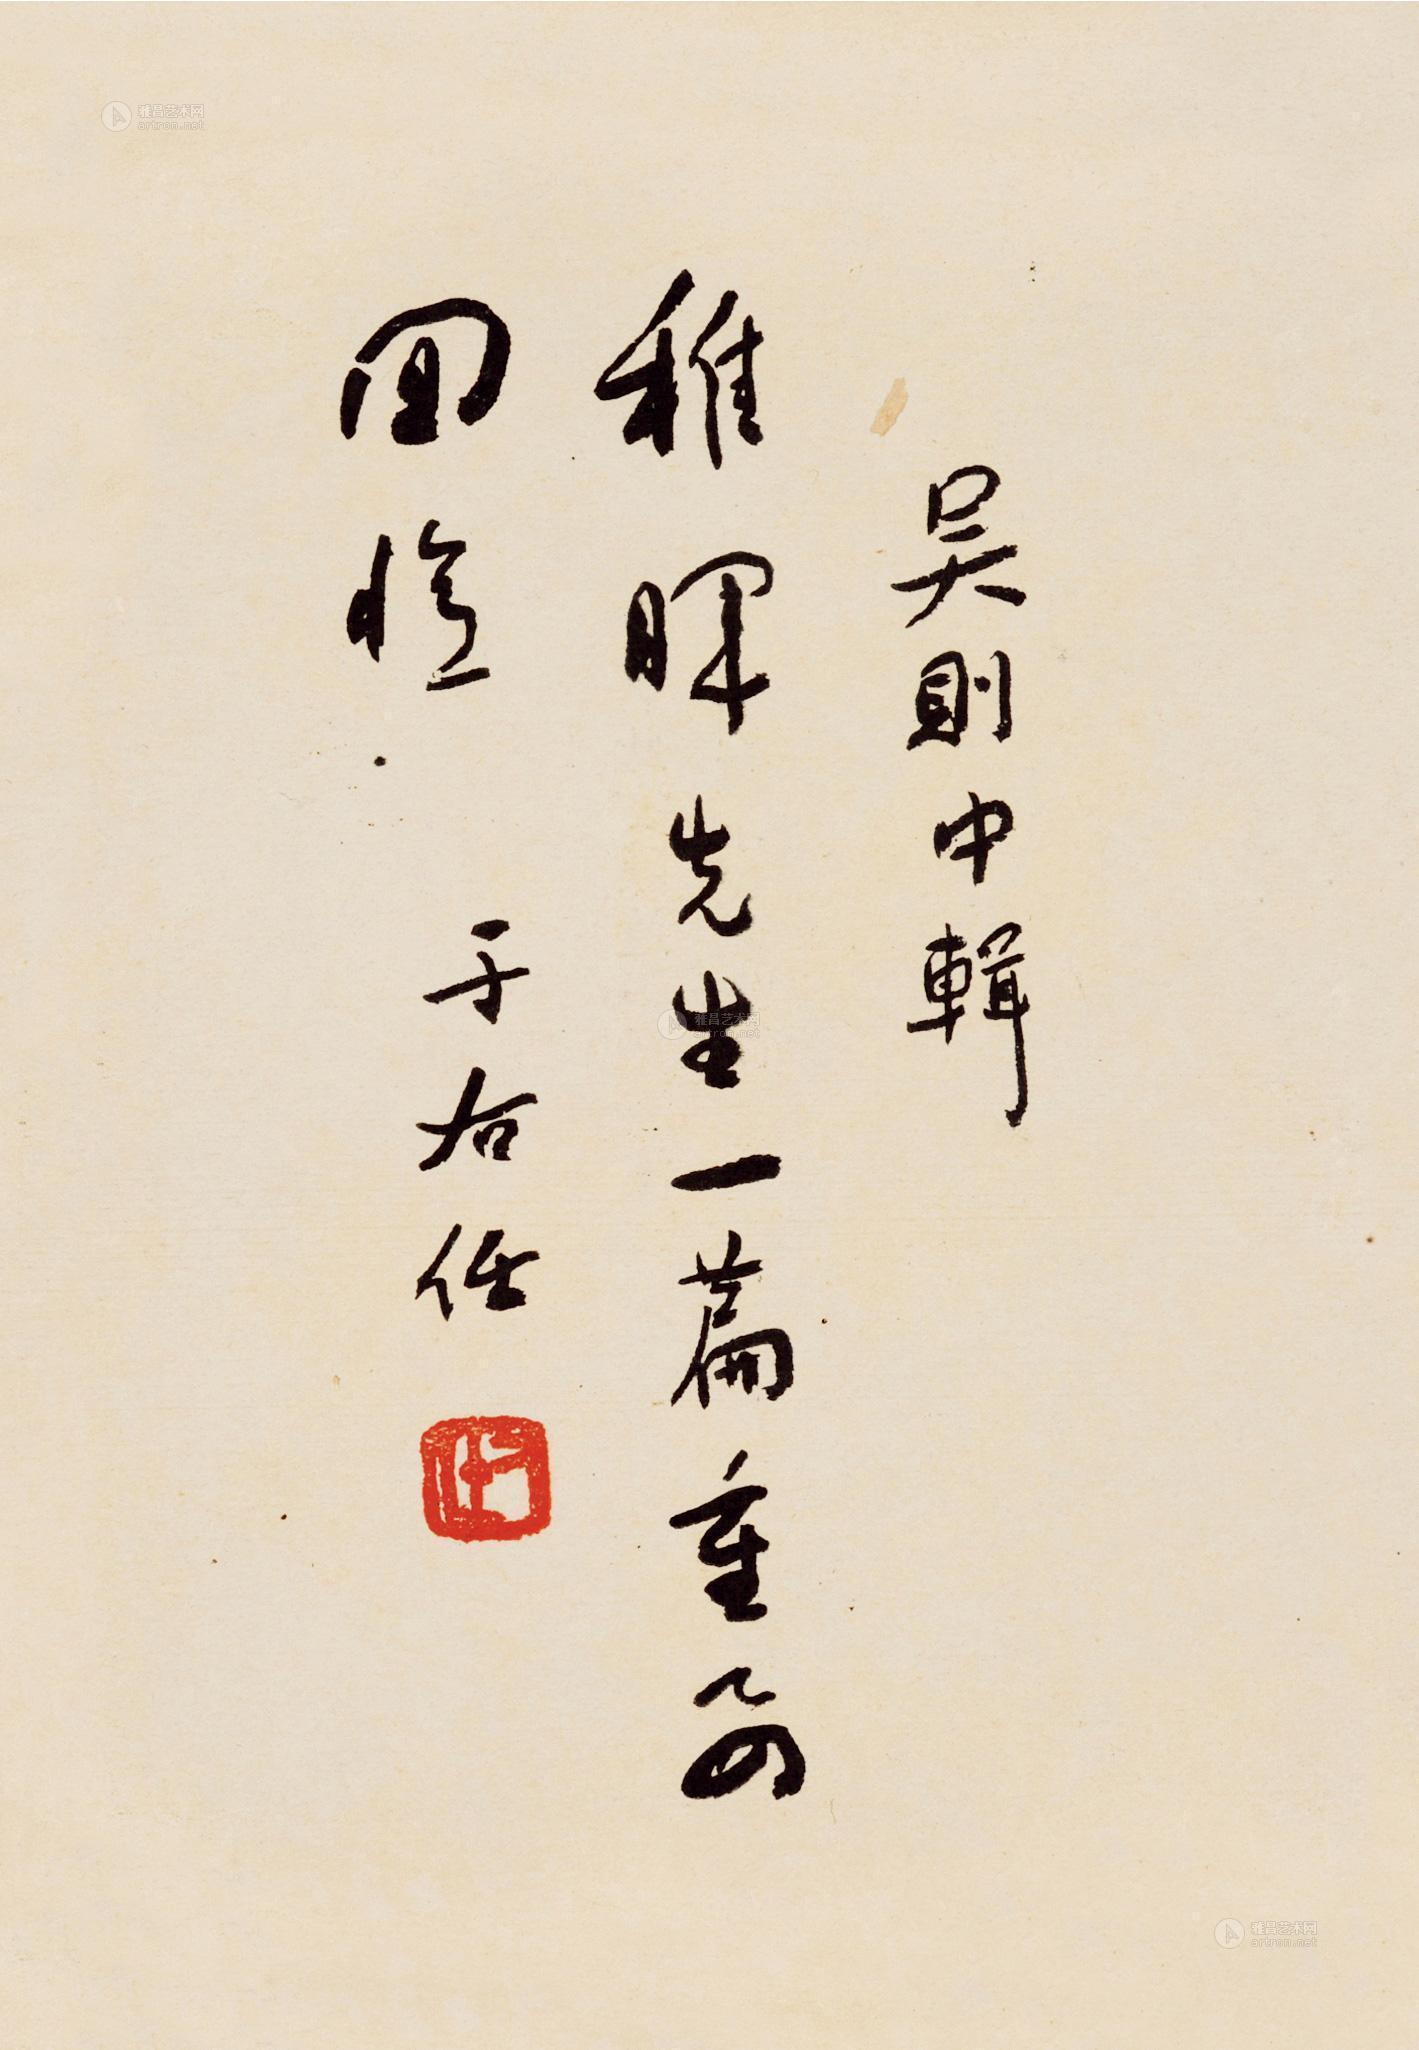 吴則中輯
稚暉先生一篇重要
回憶
于右任
右任
雅昌艺术网
artron.net
雅昌艺术网
artron.net
雅昌艺术网
artron.net